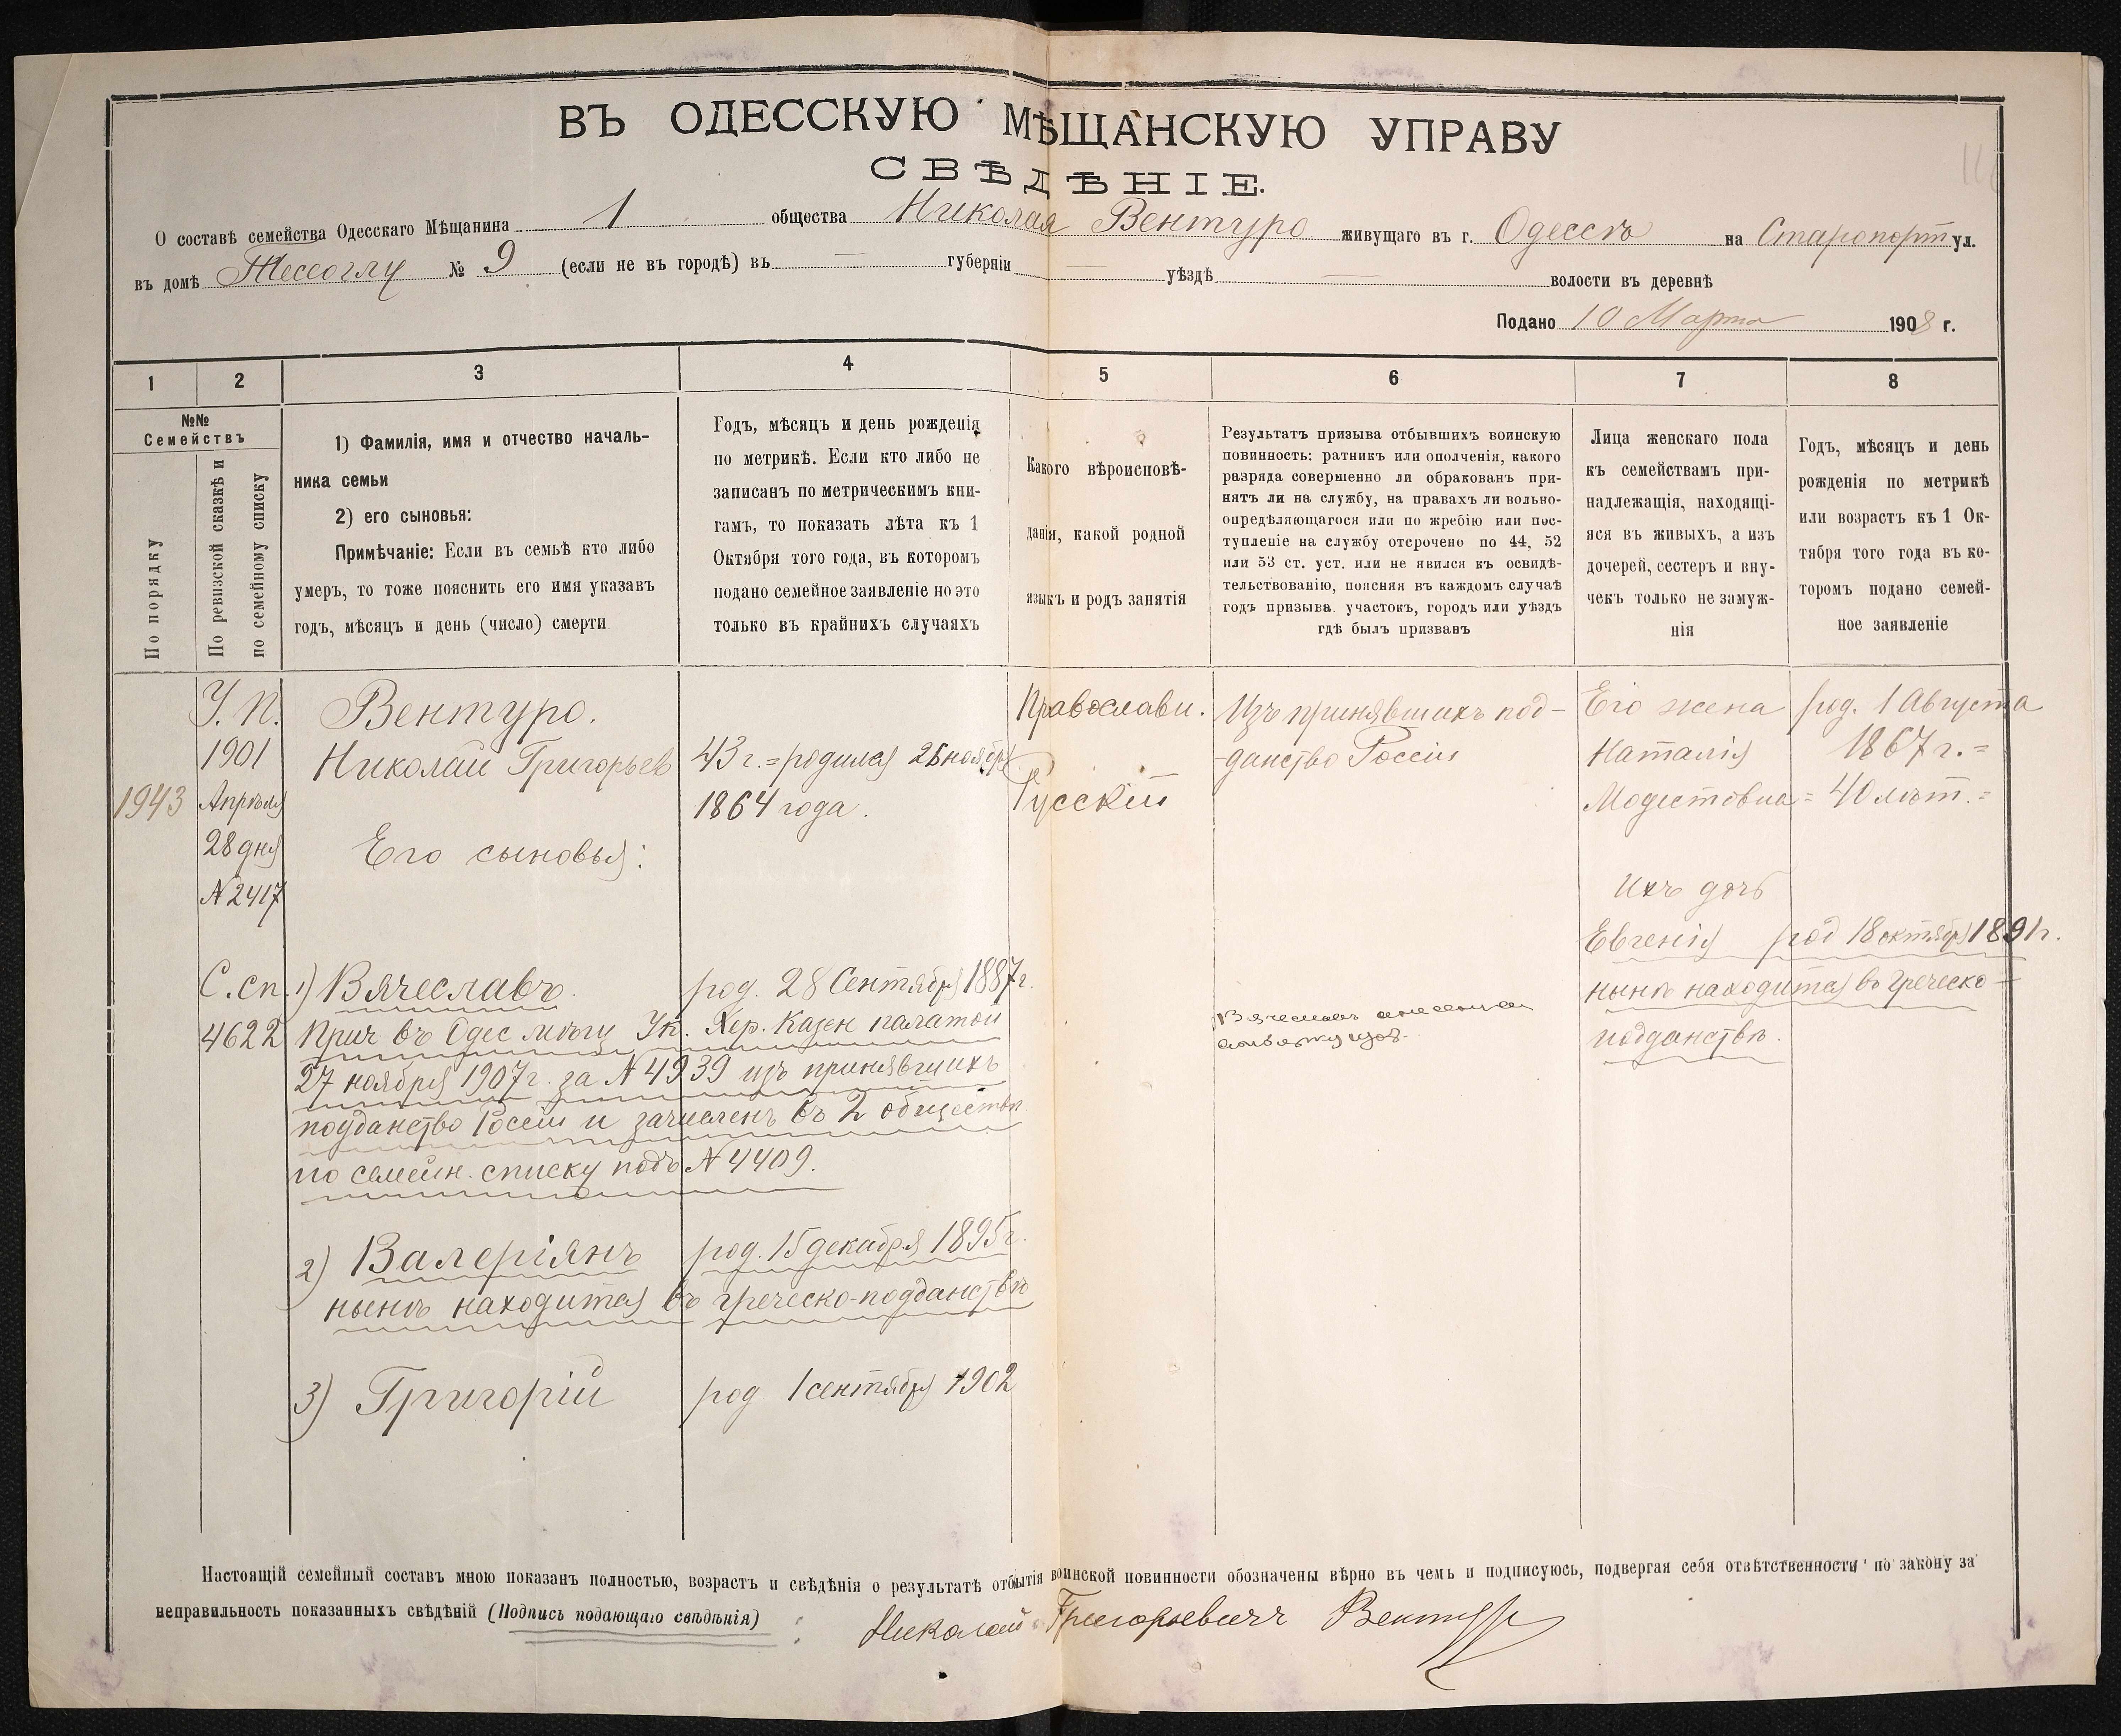 ВЪ ОДЕССКУЮ МѢЩАНСКУЮ УПРАВУ
СВѢДѢНІЕ.
О составѣ семейства Одесскаго Мѣщанина 1 общества Николая Вентуро живущаго въ г. Одессѣ на Старопорт ул.
въ домѣ № 9 (если не въ городѣ) въ — губерніи — уѣздѣ — волости въ деревнѣ
Подано 10 Марта 1908 г.
1 2 3 4 5 6 7 8
№№
Семействъ
По порядку
По ревизской сказкѣ и
по семейному списку
1) Фамилія, имя и отчество началь-
ника семьи
2) его сыновья:
Примѣчаніе: Если въ семьѣ кто либо
умеръ, то тоже пояснить его имя указавъ
годъ, мѣсяцъ и день (число) смерти
Годъ, мѣсяцъ и день рожденія
по метрикѣ. Если кто либо не
записанъ по метрическимъ кни-
гамъ, то показать лѣта къ 1
Октября того года, въ которомъ
подано семейное заявленіе но это
только въ крайнихъ случаяхъ
Какого вѣроисповѣ-
данія, какой родной
языкъ и родъ занятія
Результатъ призыва отбывшихъ воинскую
повинность: ратникъ или ополченія, какого
разряда совершенно ли обракованъ при-
нятъ ли на службу, на правахъ ли вольно-
опредѣляющагося или по жребію или пос-
тупленіе на службу отсрочено по 44, 52
или 53 ст. уст. или не явился къ освидѣ-
тельствованію, поясняя въ каждомъ случаѣ
годъ призыва участокъ, городъ или уѣздъ
гдѣ былъ призванъ
Лица женскаго пола
къ семействамъ при-
надлежащія, находящі-
яся въ живыхъ, а изъ
дочерей, сестеръ и вну-
чекъ только не замуж-
нія
Годъ, мѣсяцъ и день
рожденія по метрикѣ
или возрастъ къ 1 Ок-
тября того года въ ко-
торомъ подано семей-
ное заявленіе
1943
У. П.
1901
Апрѣля
28 дня
№ 2417
С. сп.
4622
Вентуро.
Николай Григорьев
43 г. = родился 26 ноября
1864 года.
Православн.
Русскій
Изъ принявшихъ под-
данство Россіи
Его жена
Наталія
Модестовна =
род. 1 Августа
1867 г. =
40 лѣт. =
Его сыновья:
Ихъ дочь
Евгенія род 18 октября 1891 г.
нынѣ находится въ греческо-
подданствѣ.
1) Вячеславъ род. 28 Сентября 1887 г.
Прич въ Одес мѣщ Ук. Хер. Казен палатой
27 ноября 1907 г. за № 4939 изъ принявшихъ
подданство Россіи и зачисленъ въ 2 общество
по семейн. списку подъ № 4409.
Вячеславъ
2) Валеріянъ род. 15 декабря 1895 г.
нынѣ находится въ греческо-подданствѣ
3) Григорій род 1 сентября 1902
Настоящій семейный составъ мною показанъ полностью, возрастъ и свѣдѣнія о результатѣ отбытія воинской повинности обозначены вѣрно въ чемъ и подписуюсь, подвергая себя отвѣтственности по закону за
неправильность показанныхъ свѣдѣній (Подпись подающаго свѣдѣнія) : Николай Григорьевичъ Вентуро